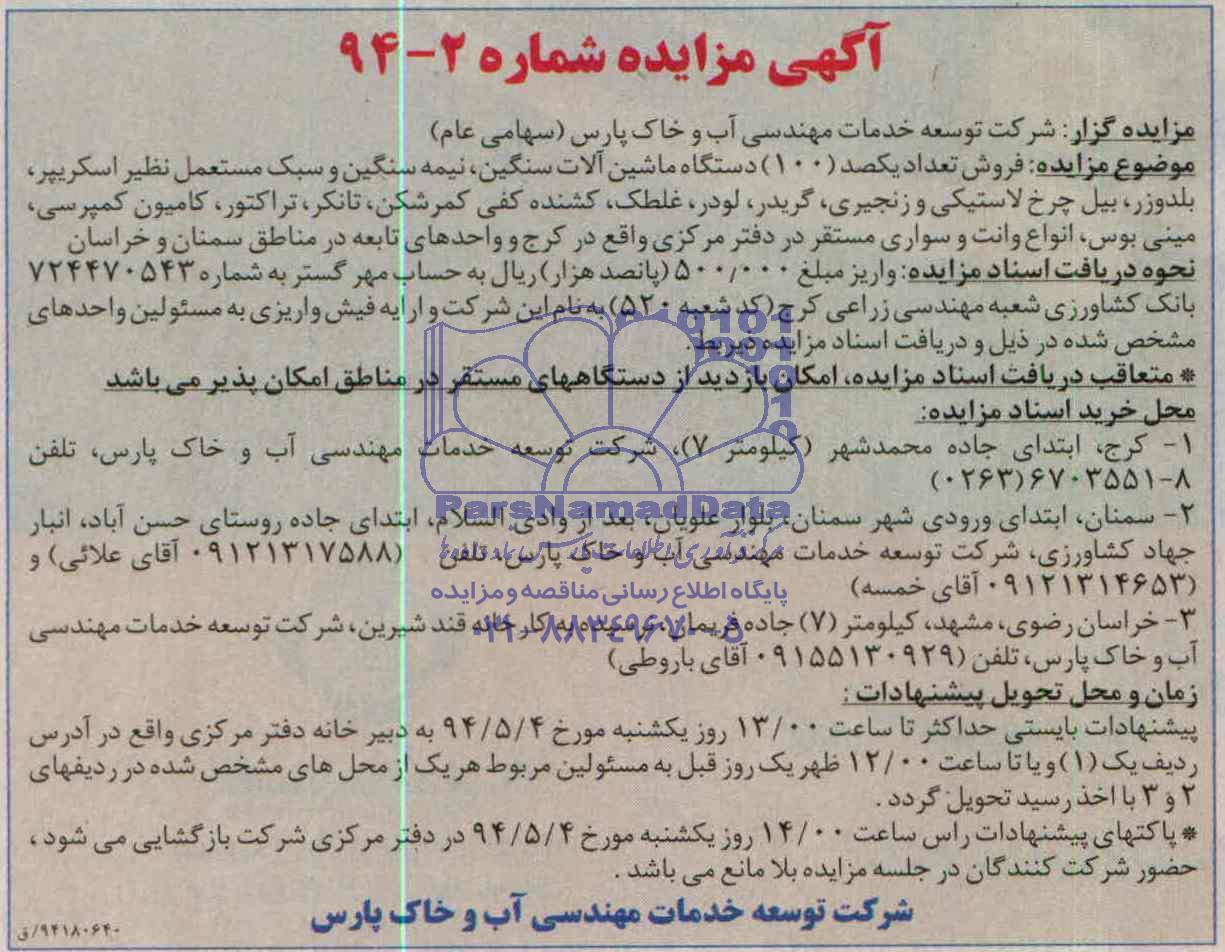 آگهی مزایده شماره ۲-۹۴
مزایده گزار: شرکت توسعه خدمات مهندسی آب و خاک پارس (سهامی عام)
موضوع مزایده: فروش تعداد یکصد (۱۰۰) دستگاه ماشین آلات سنگین، نیمه سنگین و سبک مستعمل نظیر اسکریپر،
بلدوزر، بیل چرخ لاستیکی و زنجیری، گریدر، لودر، غلطک، کشنده کفی کمرشکن، تانکر، تراکتور، کامیون کمپرسی،
مینی بوس، انواع وانت و سواری مستقر در دفتر مرکزی واقع در کرج و واحدهای تابعه در مناطق سمنان و خراسان
نحوه دریافت اسناد مزایده: واریز مبلغ ۵۰۰/۰۰۰ (پانصد هزار) ریال به حساب مهر گستر به شماره ۷۲۴۴۷۰۵۴۳
بانک کشاورزی شعبه مهندسی زراعی کرج (کد شعبه ۵۲۰) به نام این شرکت و ارایه فیش واریزی به مسئولین واحدهای
مشخص شده در ذیل و دریافت اسناد مزایده ذیربط.
* متعاقب دریافت اسناد مزایده، امکان بازدید از دستگاههای مستقر در مناطق امکان پذیر می باشد
محل خرید اسناد مزایده:
۱- کرج، ابتدای جاده محمدشهر (کیلومتر ۷)، شرکت توسعه خدمات مهندسی آب و خاک پارس، تلفن
۸-۶۷۰۳۵۵۱(۰۲۶۳)
ParsNamadData
۲- سمنان، ابتدای ورودی شهر سمنان، بلوار علویان، بعد از وادی السلام، ابتدای جاده روستای حسن آباد، انبار
جهاد کشاورزی، شرکت توسعه خدمات مهندسی آب و خاک پارس، تلفن (۰۹۱۲۱۳۱۷۵۸۸ آقای علائی) و
(۰۹۱۲۱۳۱۴۶۵۳ آقای خمسه)
پایگاه اطلاع رسانی مناقصه و مزایده
۳- خراسان رضوی، مشهد، کیلومتر (۷) جاده فریمان، نرسیده به کارخانه قند شیرین، شرکت توسعه خدمات مهندسی
۰۲۱-۸۸۳۴۹۶۷۰-۵
آب و خاک پارس، تلفن (۰۹۱۵۵۱۳۰۹۲۹ آقای باروطی)
زمان و محل تحویل پیشنهادات:
پیشنهادات بایستی حداکثر تا ساعت ۱۳/۰۰ روز یکشنبه مورخ ۹۴/۵/۴ به دبیر خانه دفتر مرکزی واقع در آدرس
ردیف یک (۱) و یا تا ساعت ۱۲/۰۰ ظهر یک روز قبل به مسئولین مربوط هر یک از محل های مشخص شده در ردیفهای
۲ و ۳ با اخذ رسید تحویل گردد.
* پاکتهای پیشنهادات راس ساعت ۱۴/۰۰ روز یکشنبه مورخ ۹۴/۵/۴ در دفتر مرکزی شرکت بازگشایی می شود،
حضور شرکت کنندگان در جلسه مزایده بلا مانع می باشد.
شرکت توسعه خدمات مهندسی آب و خاک پارس
۹۴۱۸۰۶۴۰/ق